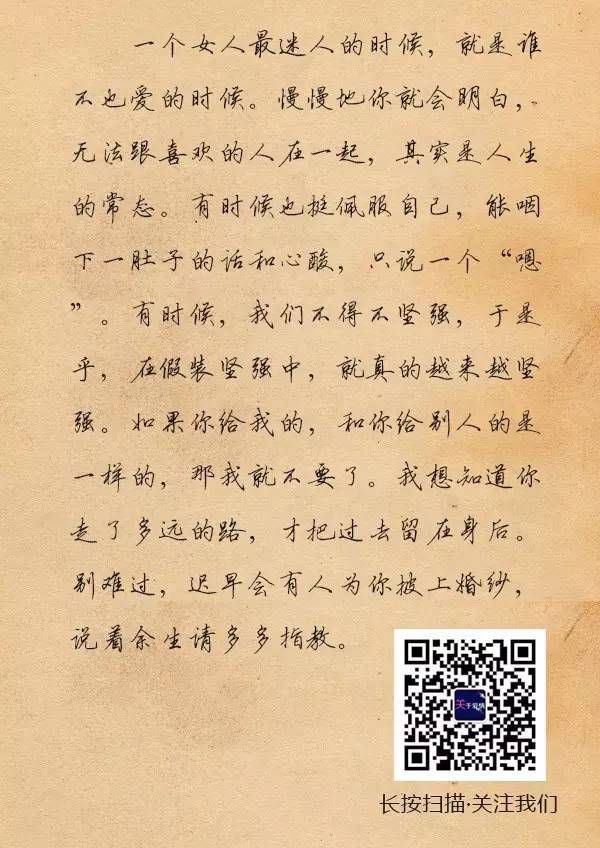 一个女人最迷人的时候，就是谁
不也爱的时候。慢慢地你就会明白，
无法跟喜欢的人在一起，其实是人生
的常态。有时候也挺佩服自己，能咽
下一肚子的话和心酸，只说一个“嗯
”。有时候，我们不得不坚强，于是
乎，在假装坚强中，就真的越来越坚
强。如果你给我的，和你给别人的是
一样的，那我就不要了。我想知道你
走了多远的路，才把过去留在身后。
别难过，迟早会有人为你披上婚纱，
说着余生请多多指教。
关于爱情
长按扫描·关注我们